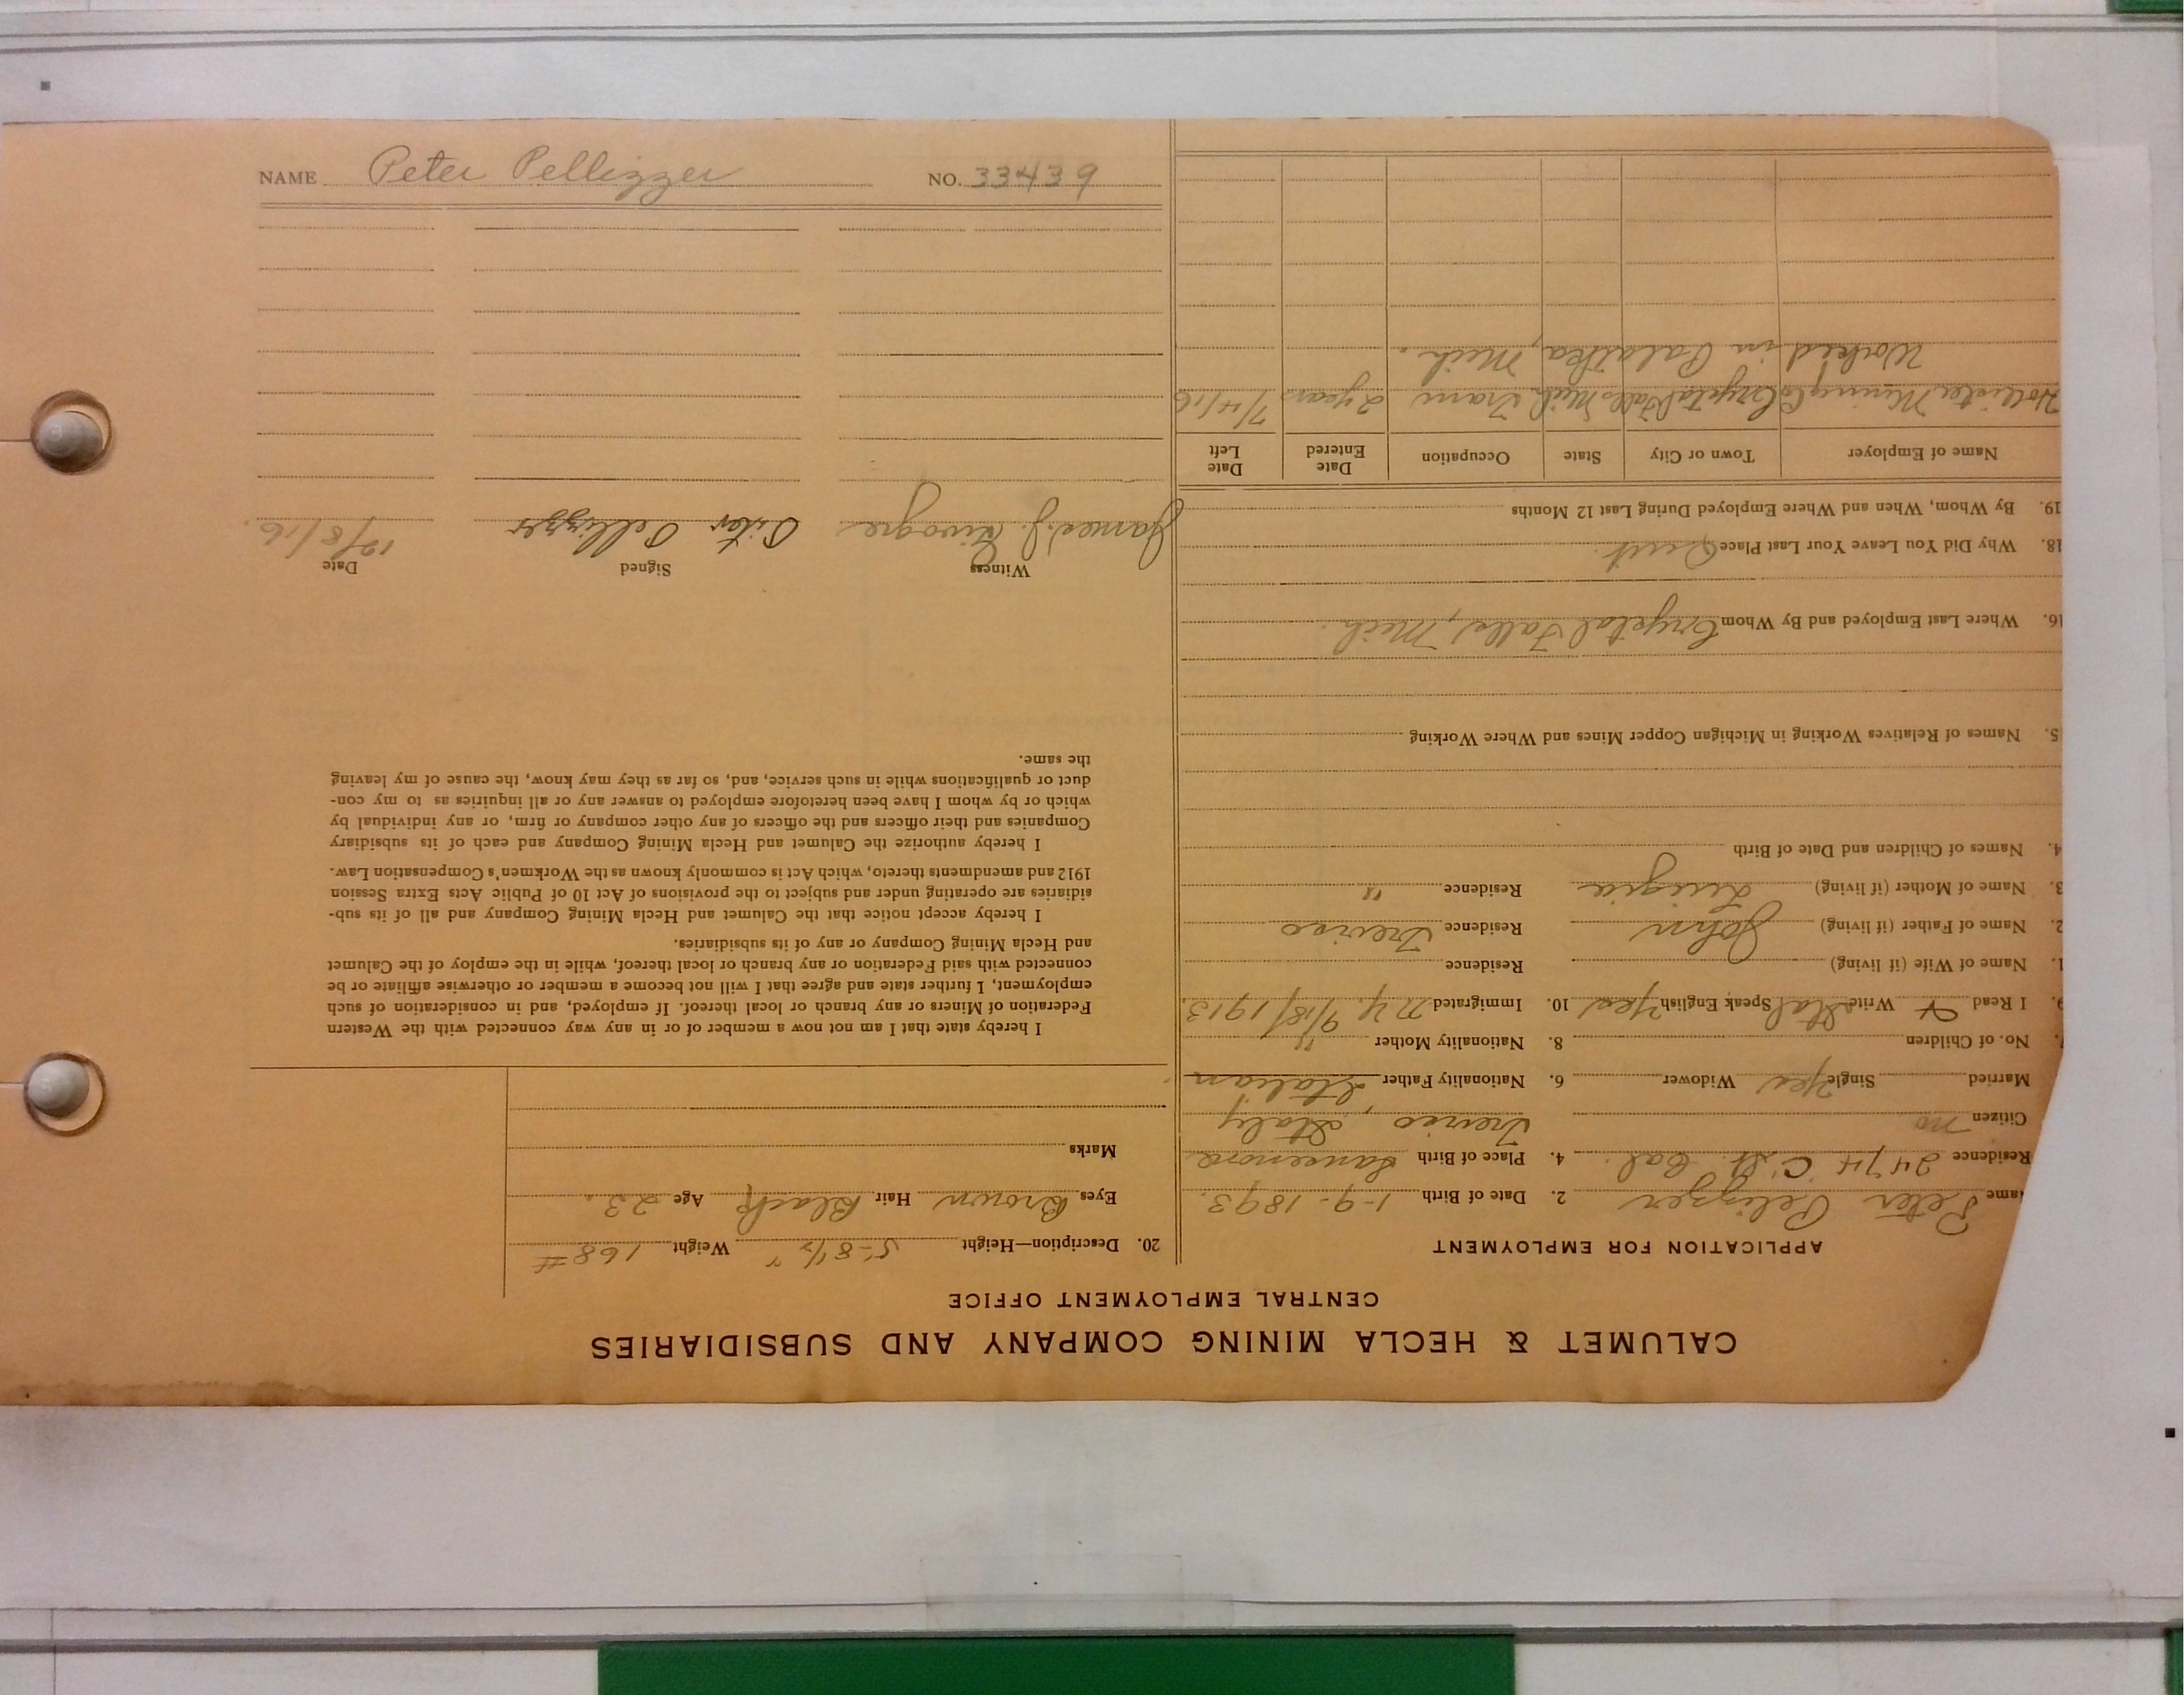 NAME Peter Pellizzer NO. 33439
CALUMET & HECLA MINING COMPANY AND SUBSIDIARIES
CENTRAL EMPLOYMENT OFFICE
APPLICATION FOR EMPLOYMENT
ame Peter Pelizzer 2. Date of Birth 1-9-1893.
Residence 2474 "C" St. Cal. 4. Place of Birth
Citizen no Treviso, Italy
Married Single Yes Widower 6. Nationality Father Italian
No. of Children 8. Nationality Mother "
9. I Read Write Ital Speak English Yes 10. Immigrated N.Y. 9/18/1913.
1. Name of Wife (if living) Residence
2. Name of Father (if living) John Residence Treviso
3. Name of Mother (if living) Luigia Residence "
4. Names of Children and Date of Birth
5. Names of Relatives Working in Michigan Copper Mines and Where Working
16. Where Last Employed and By Whom Crystal Falls, Mich.
18. Why Did You Leave Your Last Place Quit.
19. By Whom, When and Where Employed During Last 12 Months
Name of Employer Town or City State Occupation Date Entered Date Left
Hollister Mining Co Crystal Falls Mich Tram 2 years 7/4/16
Worked in Palatka, Mich.
20. Description—Height 5-8½" Weight 168#
Eyes Brown Hair Black Age 23.
Marks
I hereby state that I am not now a member of or in any way connected with the Western
Federation of Miners or any branch or local thereof. If employed, and in consideration of such
employment, I further state and agree that I will not become a member or otherwise affiliate or be
connected with said Federation or any branch or local thereof, while in the employ of the Calumet
and Hecla Mining Company or any of its subsidiaries.
I hereby accept notice that the Calumet and Hecla Mining Company and all of its sub-
sidiaries are operating under and subject to the provisions of Act 10 of Public Acts Extra Session
1912 and amendments thereto, which Act is commonly known as the Workmen's Compensation Law.
I hereby authorize the Calumet and Hecla Mining Company and each of its subsidiary
Companies and their officers and the officers of any other company or firm, or any individual by
which or by whom I have been heretofore employed to answer any or all inquiries as to my con-
duct or qualifications while in such service, and, so far as they may know, the cause of my leaving
the same.
Witness Signed Date
James J. Pellizzer 12/8/16.